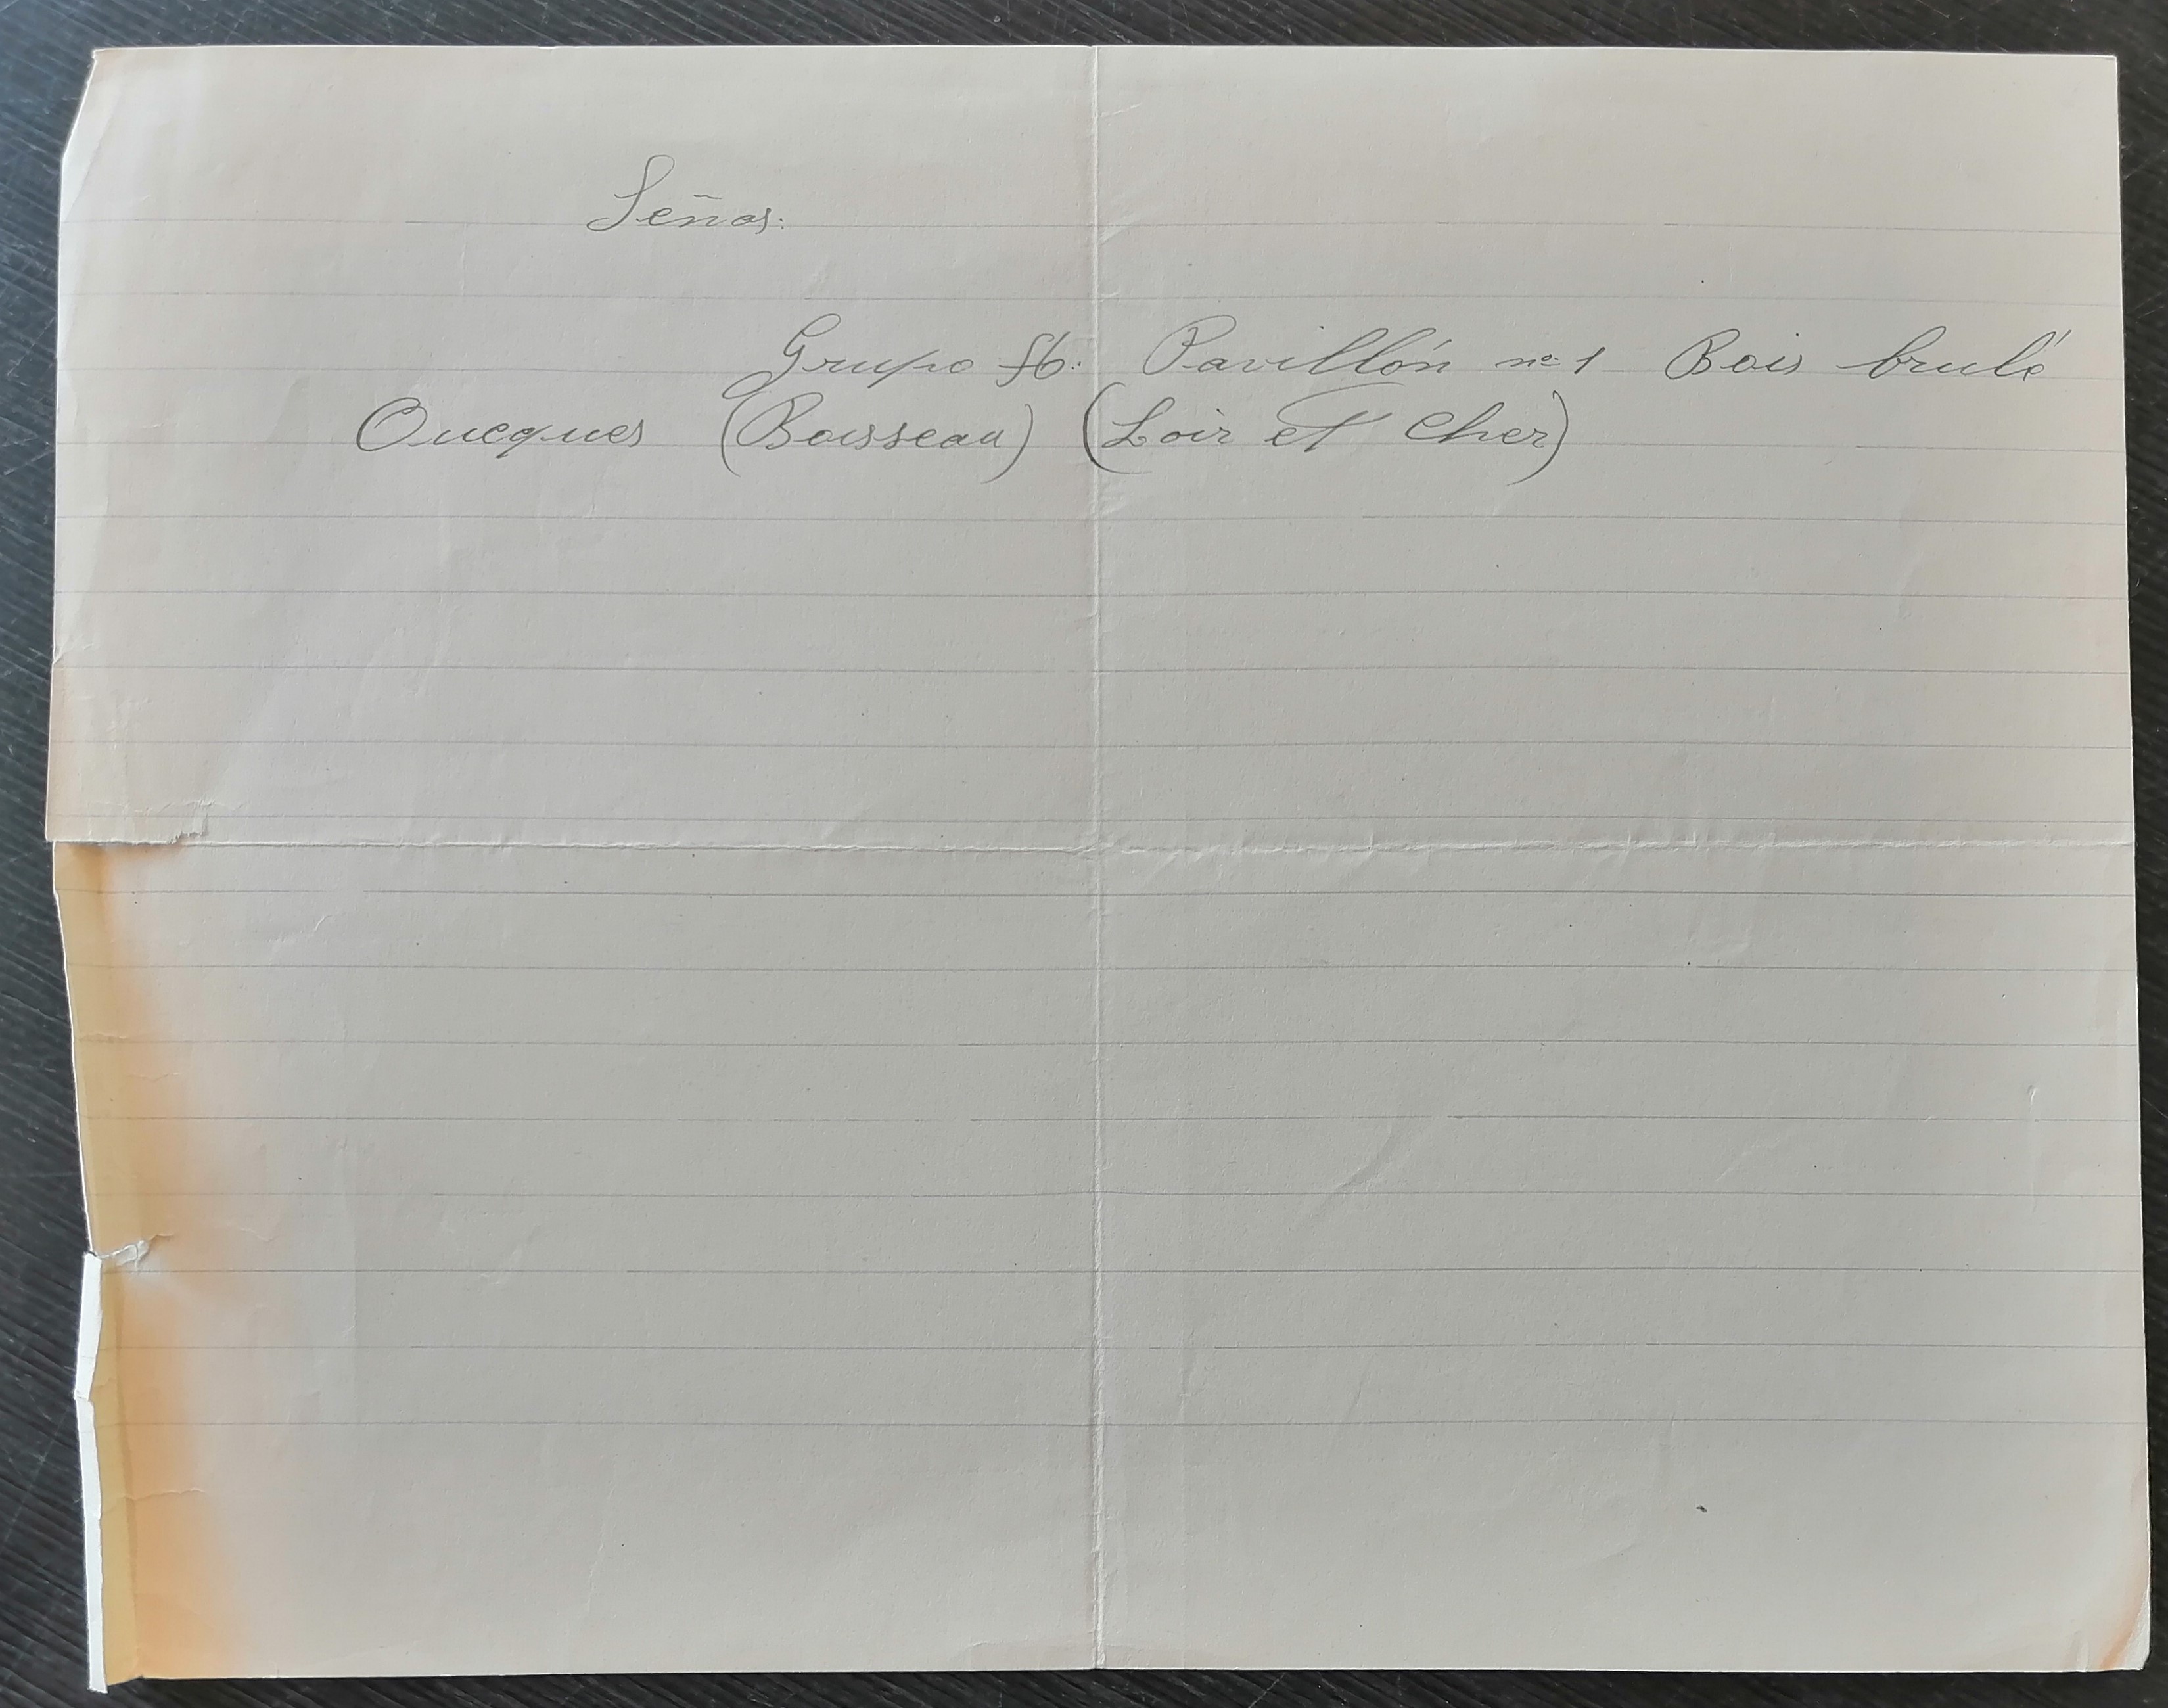 Señor:
Grupo 56: Pavillón nº 1 Bois brulé
Oucques (Boisseau) (Loir et Cher)